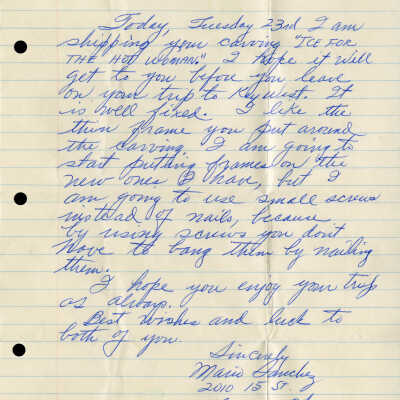 Today, Tuesday 23rd I am
shipping your carving "ICE FOR
THE HOT WOMAN" I hope it will
get to you before you leave
on your trip to Key West. It
is well fixed. I like the
thin frame you put around
the carving. I am going to
start putting frames on the
new ones I have, but I
am going to use small screws
instead of nails, because
by using screws you don't
have to bang them by nailing
them.
I hope you enjoy your trip
as always.
Best wishes and luck to
both of you.
Sincerely
Mario Sanchez
2010 15 St.